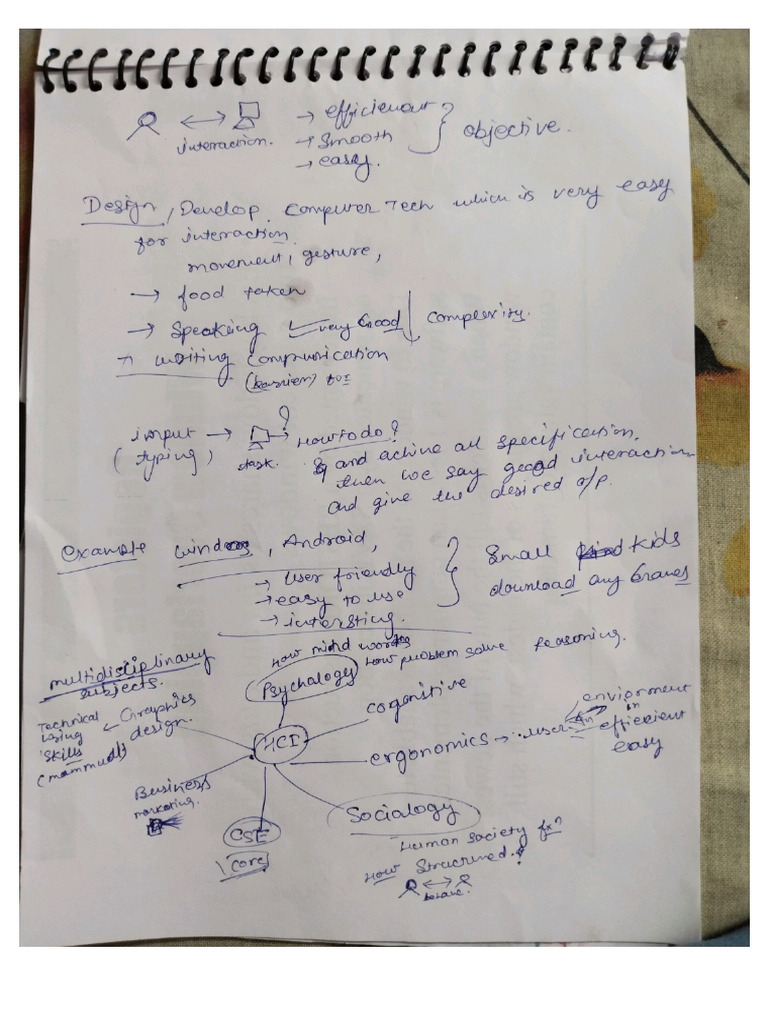 → efficienout
interaction. → Smooth } objective.
→ easy.
Design, Develop. Computer Tech which is very easy
for interaction.
movement, gesture,
→ food taken
→ Speaking very Good complexity.
→ writing communication
(barrier)
input → → How to do?
(typing) task. and achive all specification,
then we say good interaction
and give the desired o/p.
Example Windows, Android,
→ User friendly } Small kids
→ easy to use download any Games
→ intersting.
How mind works
multidisciplinary subjects.
Psychology How problem solve Reasoning.
cognitive
Technical using skills (mammual) ← Graphics design.
HCI
ergonomics → user enviorment in
effiecient
easy
Business
marketing.
Socialogy
CSE
core
Human Society fxn
How Structured?